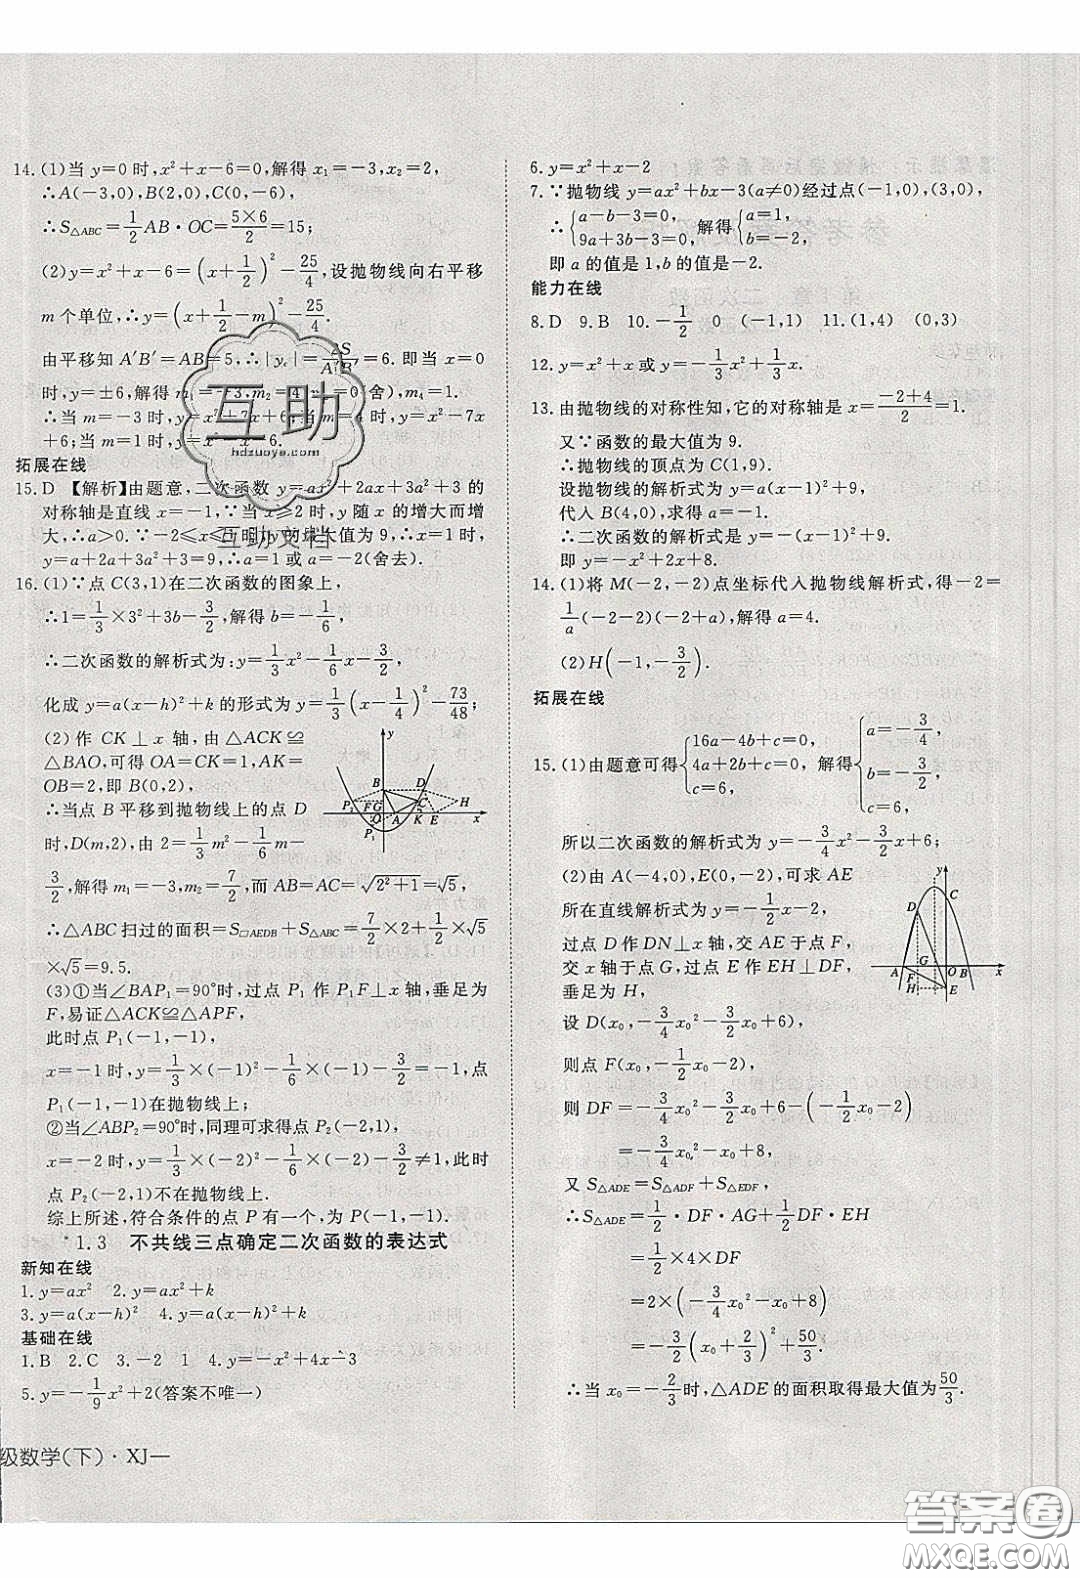 14. (1)当 y=0 时,x²+x-6=0,解得 x₁=-3,x₂=2,
∴A(-3,0),B(2,0),C(0,-6),
∴S△ABC=1/2 AB·OC=5×6/2=15;
(2)y=x²+x-6=(x+1/2)²-25/4,设抛物线向右平移
m 个单位,∴y=(x+1/2-m)²-25/4.
由平移知 A′B′=AB=5,∴|yc|=2S/A′B′=6. 即当 x=0
时,y=±6,解得 m₁=-3,m₂=4,m₃=0(舍),m₄=1.
∴当 m=-3 时,y=x²+7x+6;当 m=4 时,y=x²-7x
+6;当 m=1 时,y=x²-x-6.
拓展在线
15. D 【解析】由题意,二次函数 y=ax²+2ax+3a²+3 的
对称轴是直线 x=-1,∵当 x≥2 时,y 随 x 的增大而增
大,∴a>0. ∵-2≤x≤1 时,y 的最大值为 9,∴当 x=
1 时,y=a+2a+3a²+3=9,∴a=1 或 a=-2(舍去).
16. (1)∵点 C(3,1)在二次函数的图象上,
∴1=1/3×3²+3b-3/2,解得 b=-1/6,
∴二次函数的解析式为:y=1/3x²-1/6x-3/2,
化成 y=a(x-h)²+k 的形式为 y=1/3(x-1/4)²-73/48;
(2)作 CK⊥x 轴,由△ACK≌
△BAO,可得 OA=CK=1,AK=
OB=2,即 B(0,2),
∴当点 B 平移到抛物线上的点 D
时,D(m,2),则 2=1/3m²-1/6m-
3/2,解得 m₁=-3,m₂=7/2,而 AB=AC=√2²+1=√5,
∴△ABC 扫过的面积=S□AEDB+S△ABC=7/2×2+1/2×√5
×√5=9.5.
(3)①当∠BAP₁=90°时,过点 P₁ 作 P₁F⊥x 轴,垂足为
F,易证△ACK≌△APF,
此时点 P₁(-1,-1),
x=-1 时,y=1/3×(-1)²-1/6×(-1)-3/2=-1,点
P₁(-1,-1)在抛物线上;
②当∠ABP₂=90°时,同理可求得点 P₂(-2,1),
x=-2 时,y=1/3×(-2)²-1/6×(-2)-3/2≠1,此时
点 P₂(-2,1)不在抛物线上.
综上所述,符合条件的点 P 有一个,为 P(-1,-1).
*1.3 不共线三点确定二次函数的表达式
新知在线
1. y=ax² 2. y=ax²+k
3. y=a(x-h)² 4. y=a(x-h)²+k
基础在线
1. B 2. C 3. -2 1 4. y=-x²+4x-3
5. y=-1/9x²+2(答案不唯一)
级数学(下)·XJ—
6. y=x²+x-2
7. ∵抛物线 y=ax²+bx-3(a≠0)经过点(-1,0),(3,0),
∴{a-b-3=0, 9a+3b-3=0,解得{a=1, b=-2,
即 a 的值是 1,b 的值是-2.
能力在线
8. D 9. B 10. -1/2 0 (-1,1) 11. (1,4) (0,3)
12. y=x²+x 或 y=-1/3x²+1/3x.
13. 由抛物线的对称性知,它的对称轴是 x=-2+4/2=1.
又∵函数的最大值为 9.
∴抛物线的顶点为 C(1,9).
设抛物线的解析式为 y=a(x-1)²+9,
代入 B(4,0),求得 a=-1.
∴二次函数的解析式是 y=-(x-1)²+9,
即 y=-x²+2x+8.
14. (1)将 M(-2,-2)点坐标代入抛物线解析式,得-2=
1/a(-2-2)(-2+a),解得 a=4.
(2)H(-1,-3/2).
拓展在线
15. (1)由题意可得{16a-4b+c=0, 4a+2b+c=0, c=6,解得{a=-3/4, b=-3/2, c=6,
所以二次函数的解析式为 y=-3/4x²-3/2x+6;
(2)由 A(-4,0),E(0,-2),可求 AE
所在直线解析式为 y=-1/2x-2,
过点 D 作 DN⊥x 轴,交 AE 于点 F,
交 x 轴于点 G,过点 E 作 EH⊥DF,
垂足为 H,
设 D(x₀,-3/4x₀²-3/2x₀+6),
则点 F(x₀,-1/2x₀-2),
则 DF=-3/4x₀²-3/2x₀+6-(-1/2x₀-2)
=-3/4x₀²-x₀+8,
又 S△ADE=S△ADF+S△EDF,
∴S△ADE=1/2·DF·AG+1/2DF·EH
=1/2×4×DF
=2×(-3/4x₀²-x₀+8)
=-3/2(x₀+2/3)²+50/3.
∴当 x₀=-2/3时,△ADE 的面积取得最大值为50/3.
互助
hdzuoye.com
互助文档
答案圈
MXQE.COM